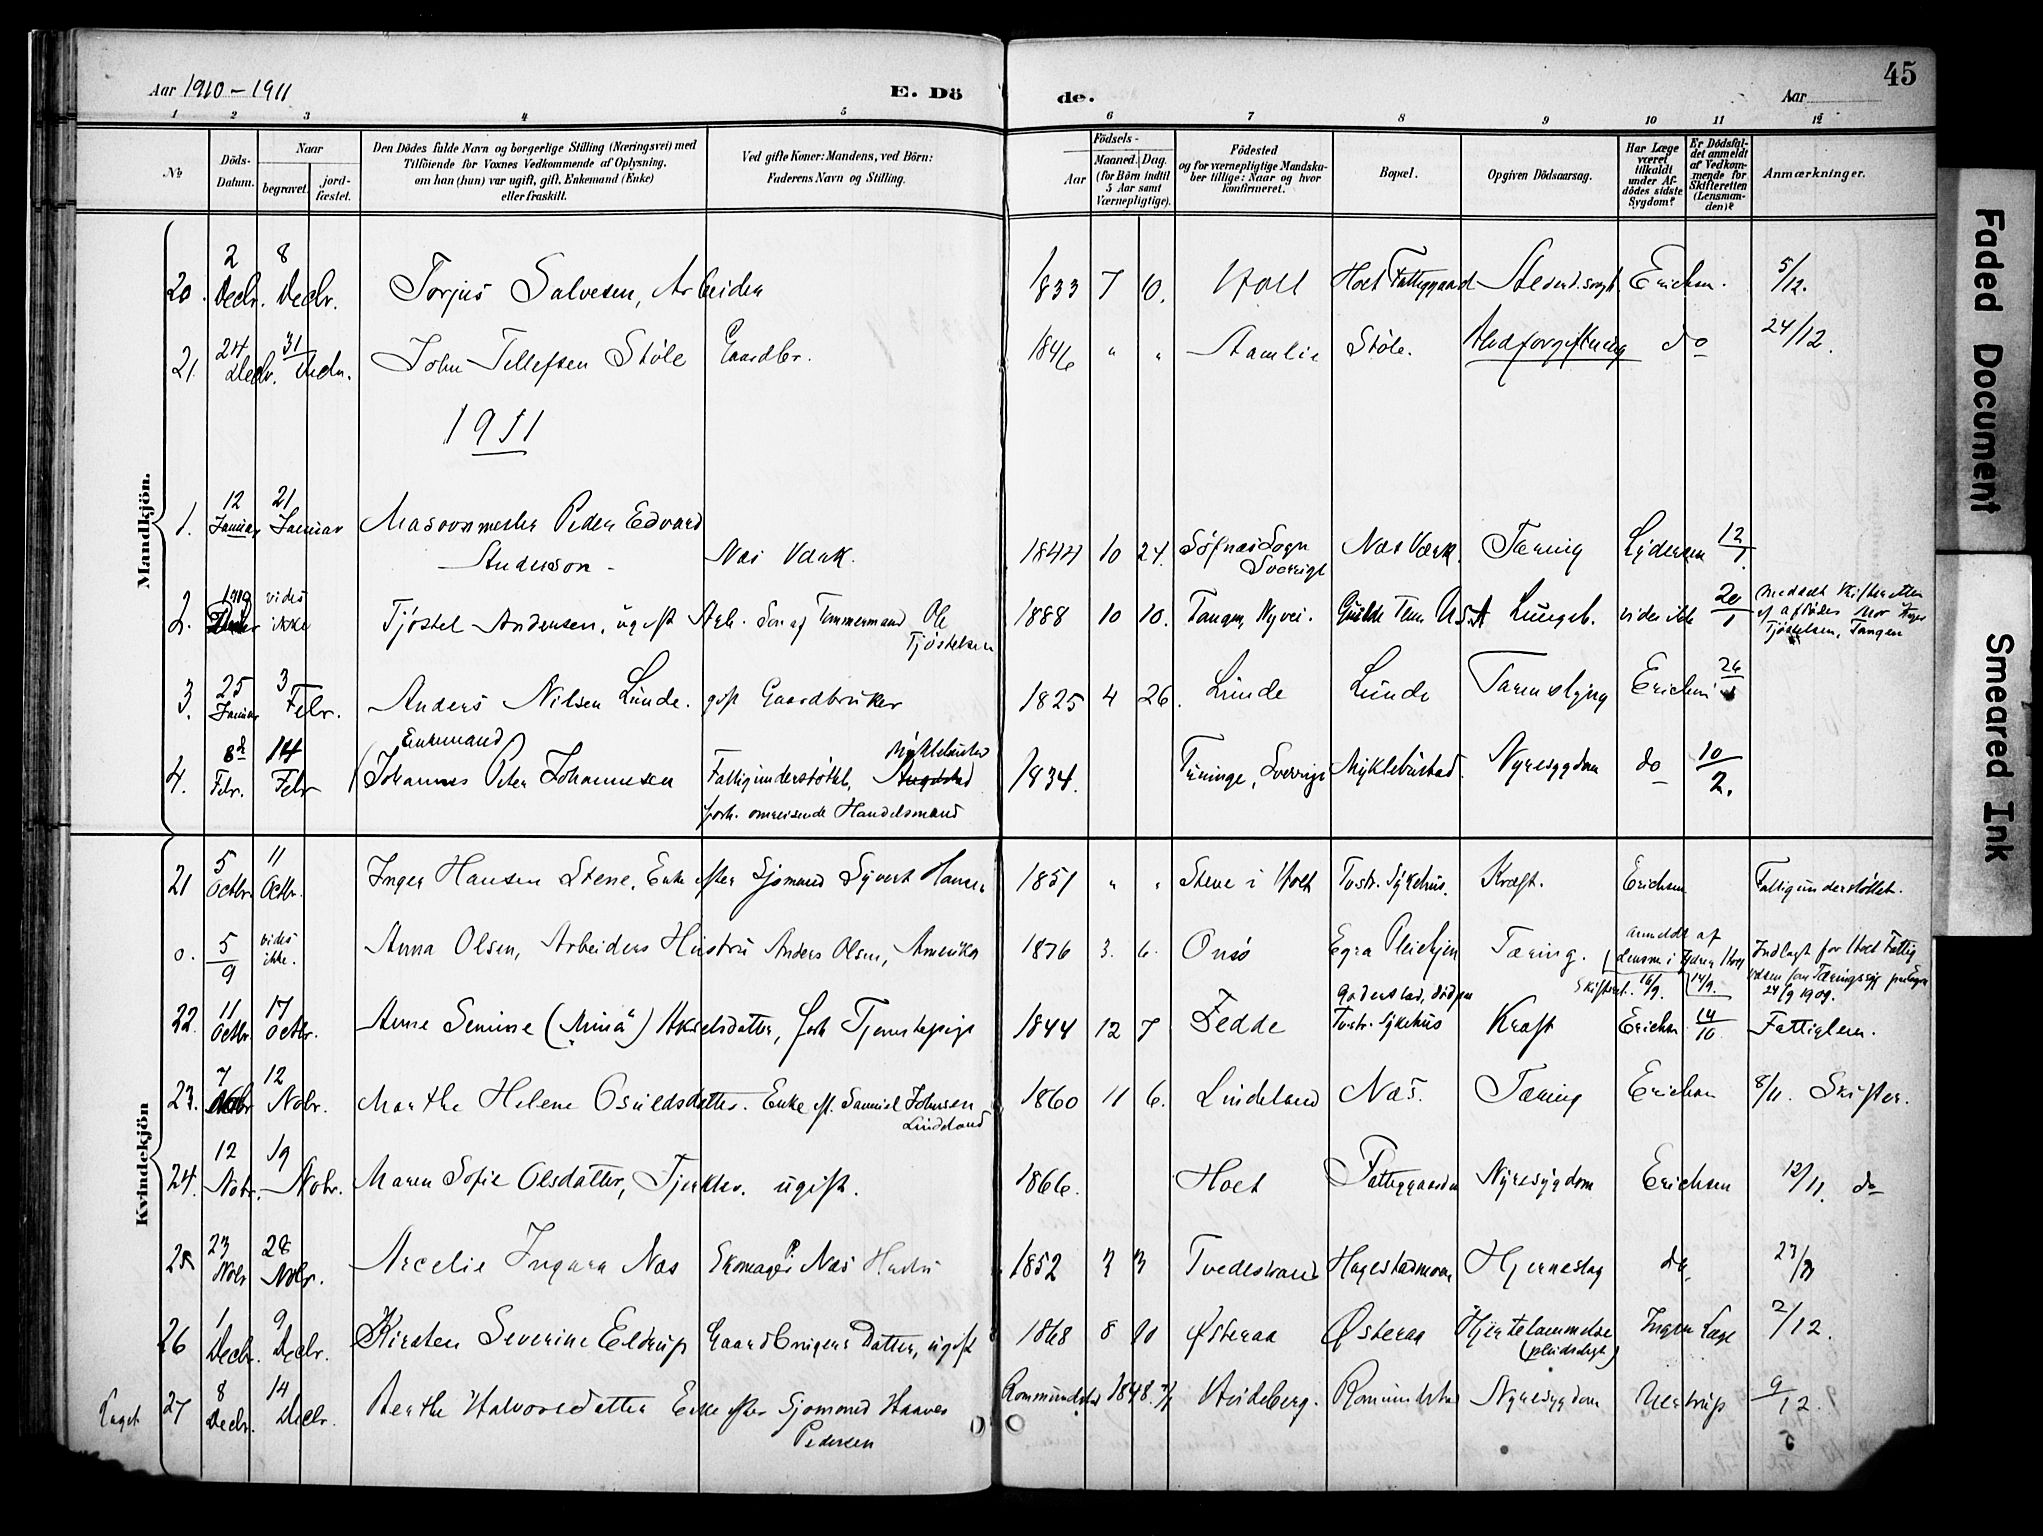 Aar 1910 - 1911
E. Dö de.
Aar
45
1 2 3 4 5 6 7 8 9 10 11 12
No
Döds-Datum.
Naar
begravet.
jord-fæstet.
Den Dödes fulde Navn og borgerlige Stilling (Næringsvei) med
Tilföiende for Voxnes Vedkommende af Oplysning,
om han (hun) var ugift, gift, Enkemand (Enke)
eller fraskilt.
Ved gifte Koner: Mandens, ved Börn:
Faderens Navn og Stilling.
Födsels-
Aar
Maaned. Dag.
(for Börn indtil
5 Aar samt
Værnepligtige).
Födested
og for værnepligtige Mandska-
ber tillige: Naar og hvor
konfirmeret.
Bopæl.
Opgiven Dödsaarsag.
Har Læge
været
tilkaldt
under Af-
dödes sidste
Sygdom?
Er Dödsfal-
det anmeldt
af Vedkom-
mende for
Skifteretten
(Lensman-
den)?
Anmærkninger.
Mandkjön.
20. 2 Decbr. 8 Decbr. Torjus Salvesen, Arbeider 1833 7 10. Holt Holt Fattiggaard Erichsen. 5/12.
21. 24 Decbr. 31 Decbr. John Tellefsen Støle Gaardbr. 1846 " " Aamlie Støle. Blodforgiftning do 24/12.
1911
1. 12 Januar 21 Januar Masovnmester Peder Edvard
Anderson - Næs Værk. 1844 10 24. Sogn Sverrige Næs Værk. Tæring 12/1
2. 1910 vides ikke Tjøstel Andersen, ugift Arb. Søn af Tømmermand Ole
Tjøstelsen 1888 10 10. Tangen, Nyvei. U.S.A Lungeb. vides ikke 20/1
Tjøstelsen, Tangen
3. 25 Januar 3 Febr. Anders Nilsen Lunde. gift Gaardbruker 1825 4 26. Lunde Lunde Erichsen 26/1
Enkemand
4. 8d Febr. 14 Febr Johannes Peter Johannesen Fattigunderstøttet, Myklebustad
forh. omreisende Handelsmand 1834. Sverrige Myklebustad. Nyresygdom do 10/2.
Kvindekjön
21 5 Octbr. 11 Octbr. Inger Hansen Stene, Enke efter Sjømand Syvert Hansen 1851 " " Stene i Holt Tvstr. Sykehus. Kræft. Erichsen Fattigunderstøttet.
0. 5/9 vides ikke. Anna Olsen, Arbeiders Hustru Anders Olsen, Amerika 1876 3. 6. Onsø Egra Pleiehjem Tæring. anmeldt af
24/9 1909.
22. 11 Octbr. 17 Octbr. Anne Semine (Mina) Akselsdatter, forh Tjenestepige 1844 12 7 Fedde Tvstr. Sykehus Kræft Erichsen 14/10 Fattiglem.
23. 7 Nobr 12 Nobr. Marthe Helene Osuldsdatter. Enke ef. Samuel Johnsen
Lindeland 1860 11 6. Lindeland Næs. Tæring Erichsen 8/11. Skifter.
24. 12 Nobr. 19 Nobr. Maren Sofie Olsdatter, ugift. 1866. Holt Fattiggaarden Nyresygdom Erichsen 12/11. do
25 23 Nobr 28 Nobr. Ingara Næs Skomager P. Næs Hustru 1852 3 3 Tvedestrand Hagestadmoen Hjerneslag do.
26 1 Decbr. 9 Decbr. Kirsten Severine Eldrup Gaardbrugers Datter, ugift 1868 8 10 Østeraa Østeraa Hjertelammelse
(pludseligt) Ingen Læge 2/12.
27 8 Decbr. 14 Decbr. Berthe Halvorsdatter Enke efter Sjømand Haaver
Pedersen 1848. Nyresygdom 9/12.
Faded Document
Smeared Ink